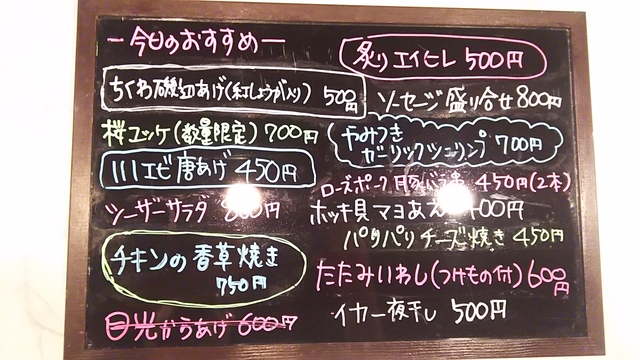 ー今日のおすすめー
ちくわ磯辺あげ(紅しょうが入り) 500円
桜ユッケ(数量限定) 700円
川エビ唐あげ 450円
シーザーサラダ 800円
チキンの香草焼き
750円
目光からあげ 600円
炙りエイヒレ 500円
ソーセージ盛り合せ 800円
やみつき
ガーリックシュリンプ 700円
ローズポーク 豚バラ串 450円(2本)
ホッキ貝マヨあえ 400円
パリパリチーズ焼き 450円
たたみいわし(つけもの付) 600円
イカ一夜干し 500円